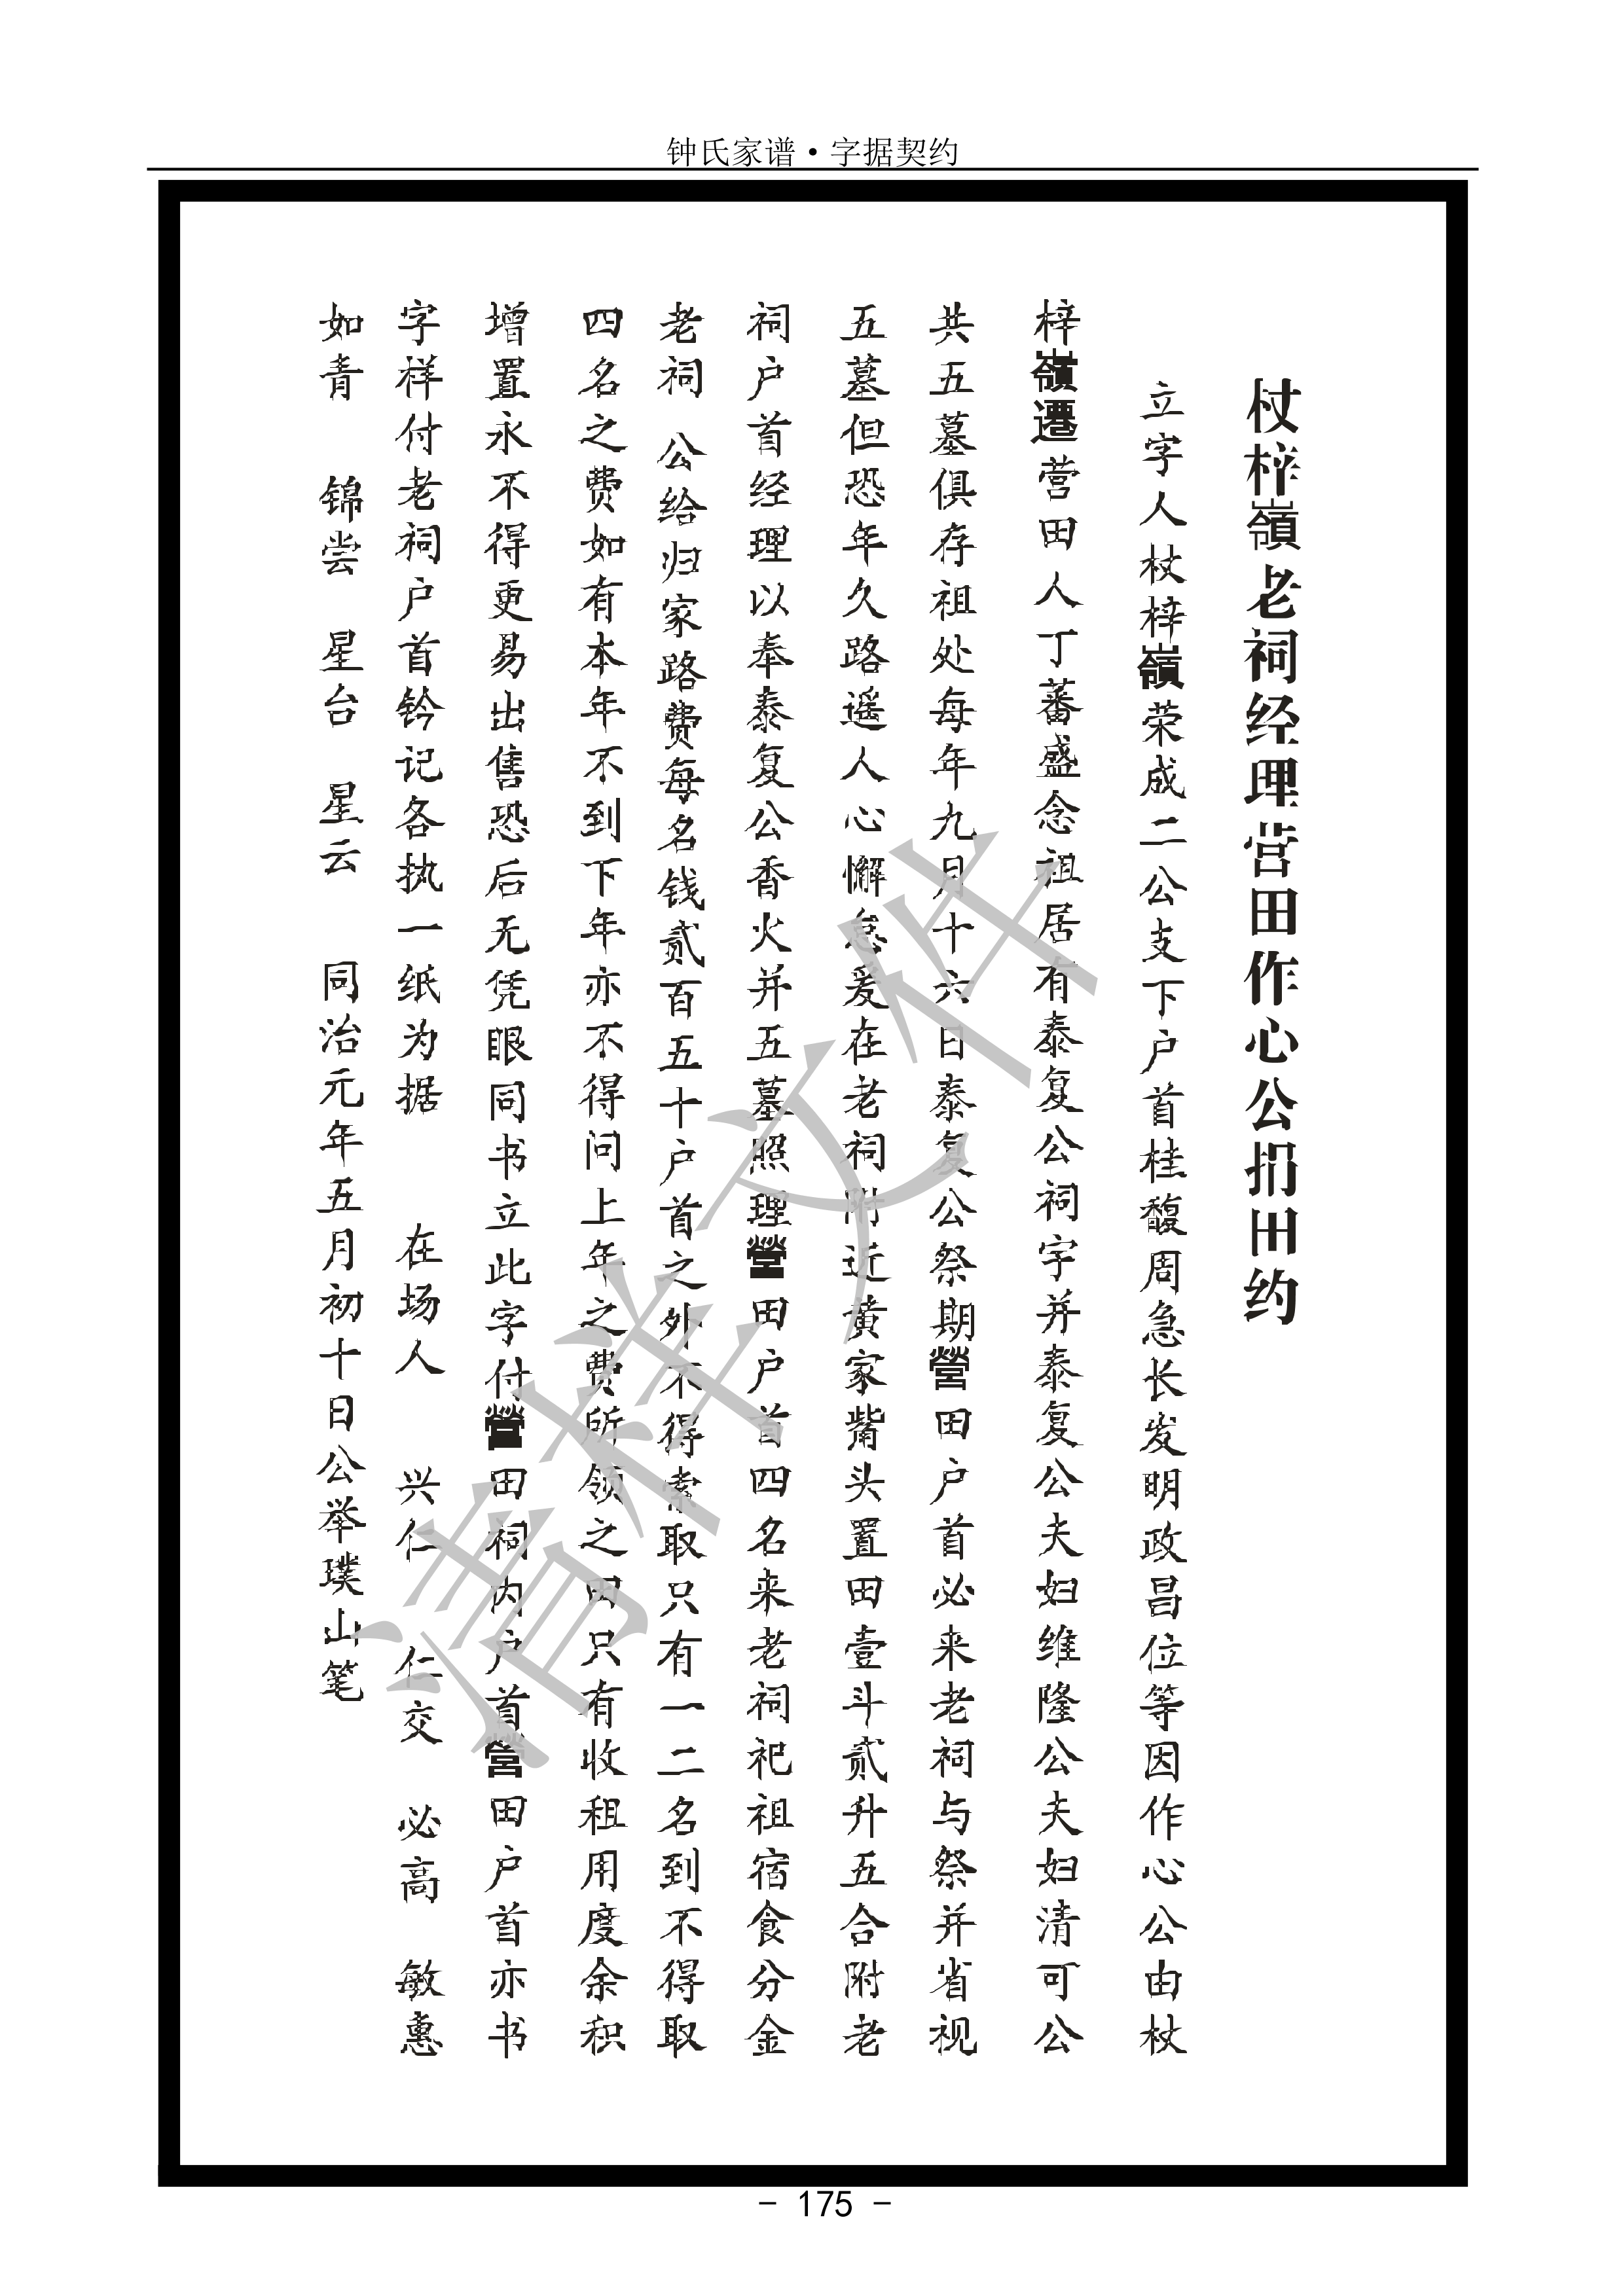 钟氏家谱·字据契约
杖梓嶺老祠经理营田作心公捐田约
立字人杖梓嶺荣成二公支下户首桂馥周急长发明政昌位等因作心公由杖
梓嶺遷营田人丁蕃盛念祖居有泰复公祠宇并泰复公夫妇维隆公夫妇清可公
共五墓俱存祖处每年九月十六日泰复公祭期營田户首必来老祠与祭并省视
五墓但恐年久路遥人心懈怠爰在老祠附近黄家觜头置田壹斗贰升五合附老
祠户首经理以奉泰复公香火并五墓照理營田户首四名来老祠祀祖宿食分金
老祠 公给归家路费每名钱贰百五十户首之外不得索取只有一二名到不得取
四名之费如有本年不到下年亦不得问上年之费所领之田只有收租用度余积
增置永不得更易出售恐后无凭眼同书立此字付營田祠内户首營田户首亦书
字样付老祠户首钤记各执一纸为据 在场人 兴仁 仁交 必高 敏惠
如青 锦尝 星台 星云 同治元年五月初十日公举璞山笔
清样文件
- 175 -